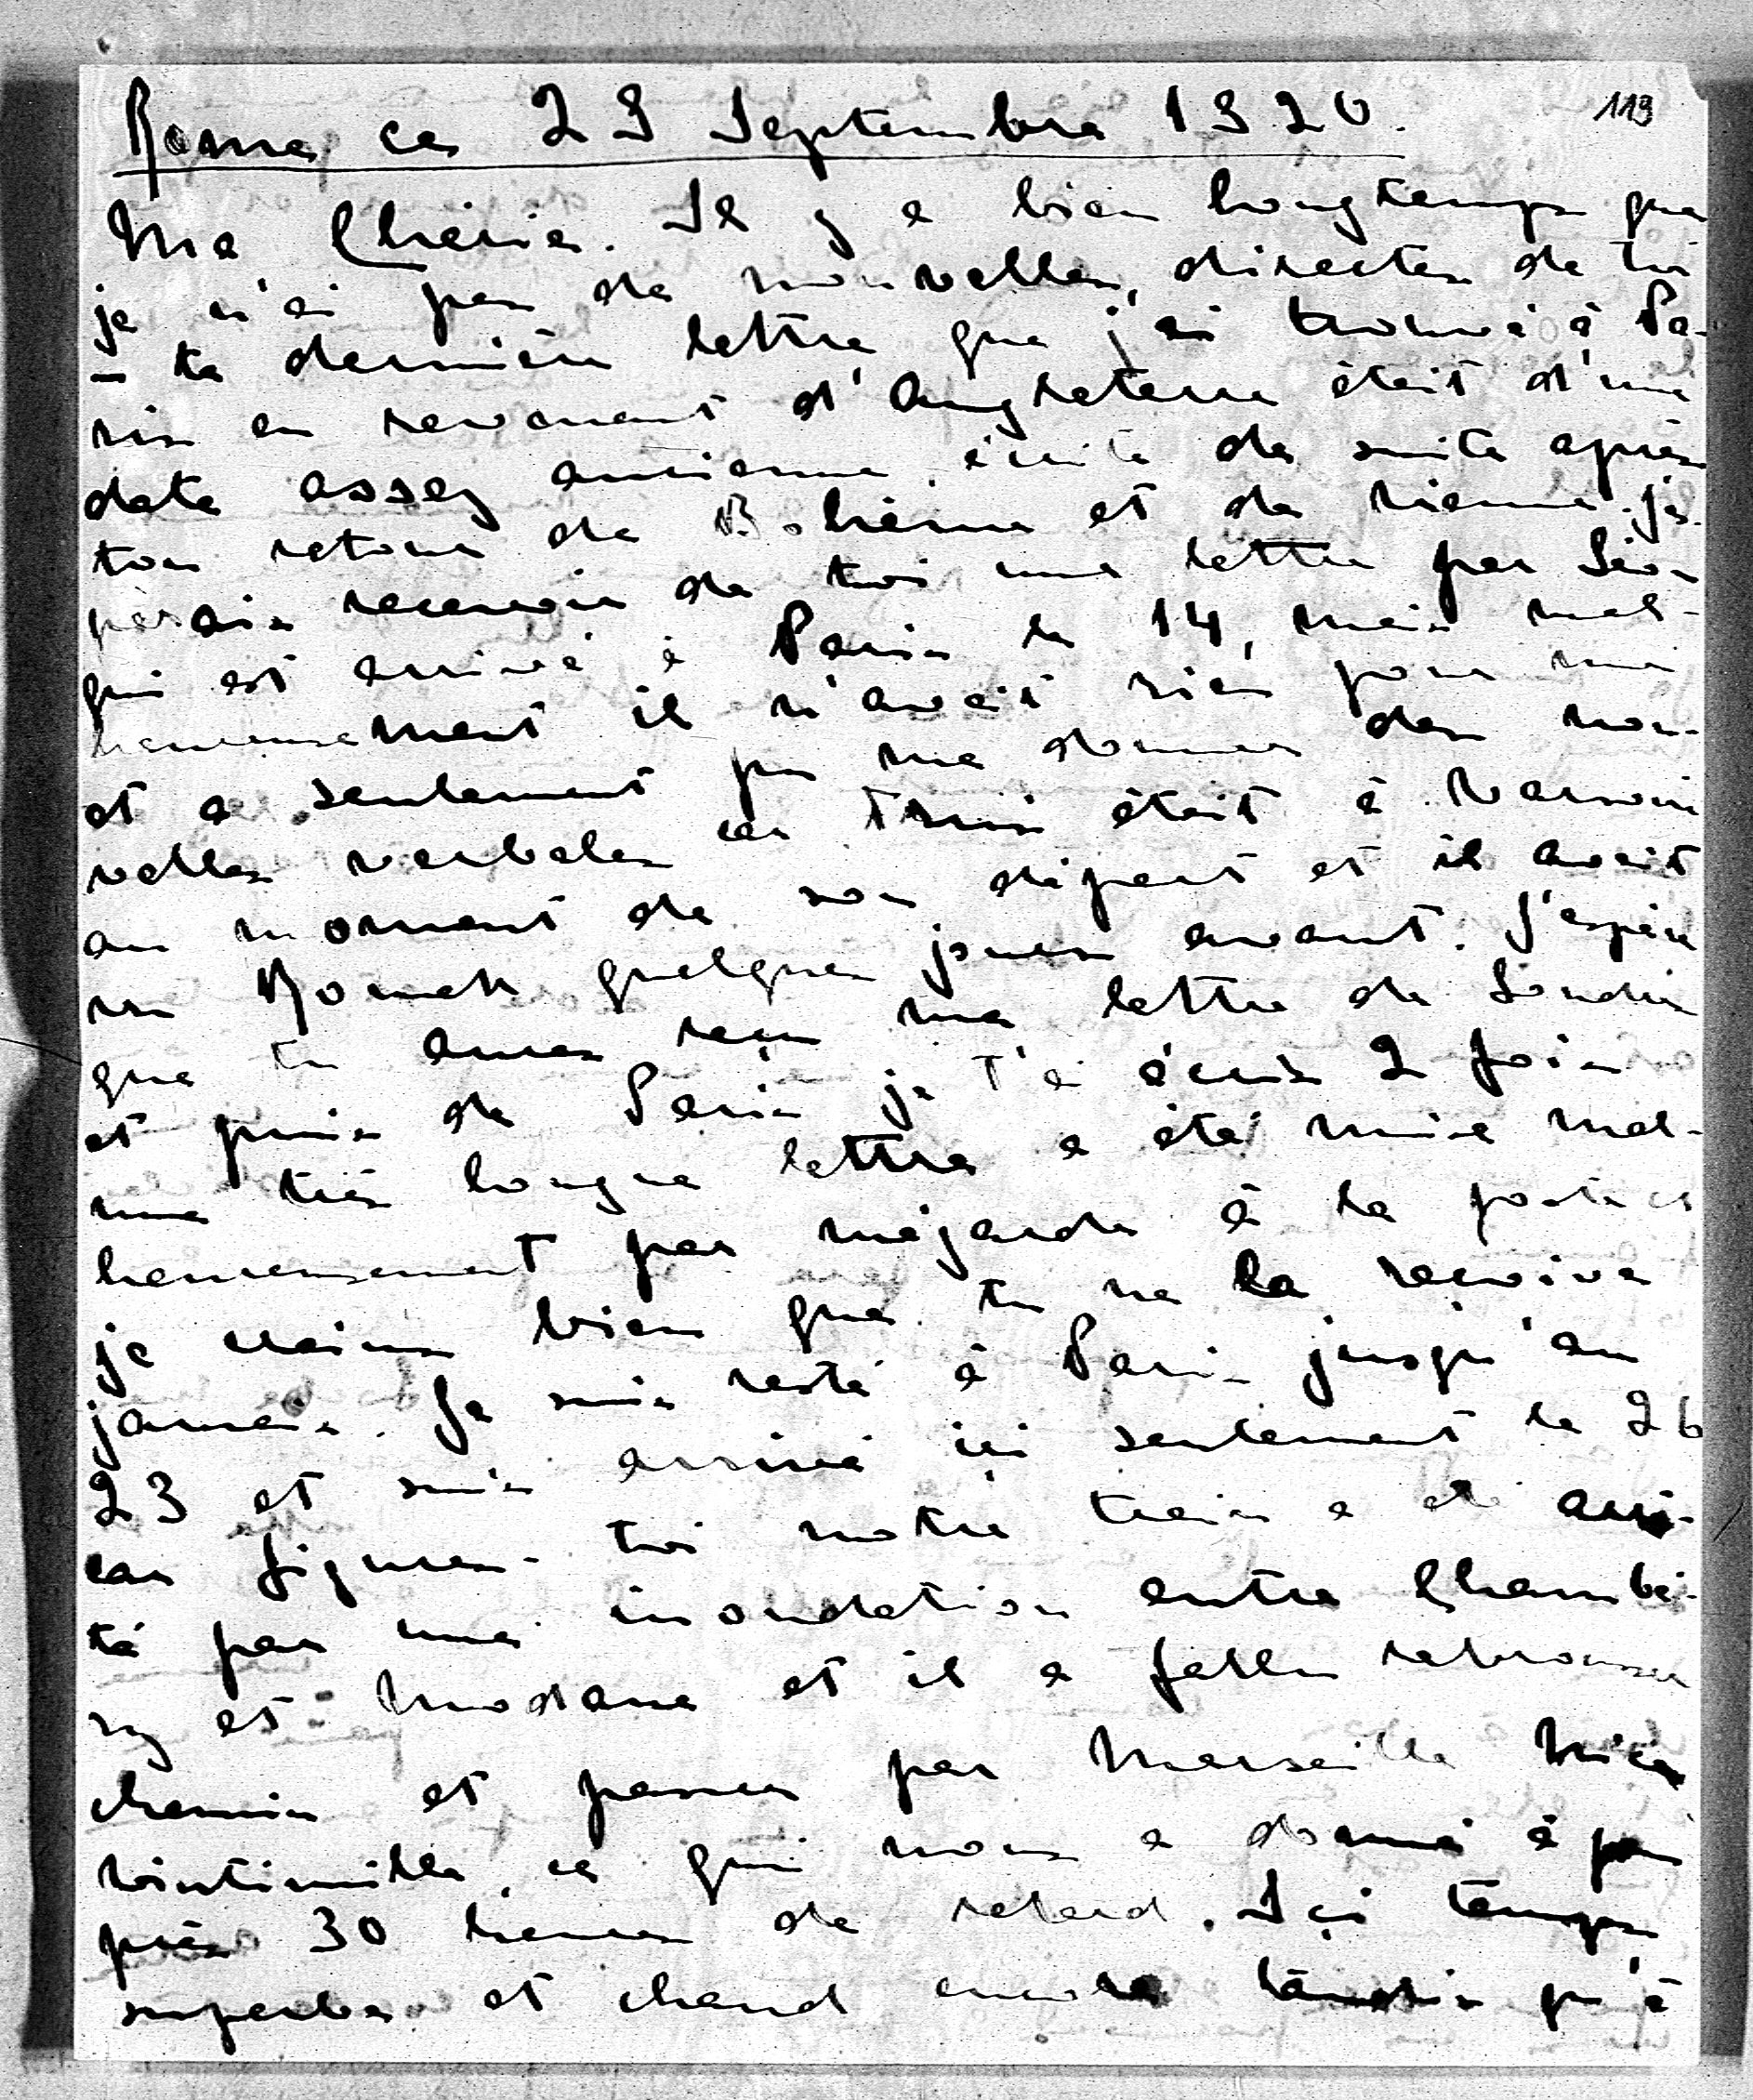 119
Rome, ce 29 Septembre 1920.
Ma Chérie. Il y a bien longtemps que
je n'ai pas de nouvelles, directes de toi
– ta dernière lettre que j'ai trouvé à Pa-
ris en revenant d'Angleterre était d'une
date assez ancienne, écrite de suite après
ton retour de Bohème et de Vienne. J'es-
pérais recevoir de toi une lettre par Léon
qui est arrivé à Paris le 14, mais mal-
heureusement il n'avait rien pour moi
et a seulement pu me donner des nou-
velles verbales car était à Varsovie
au moment de son départ et il avait
vu Romek quelques jours avant. J'espère
que tu auras reçu ma lettre de Londres
et puis de Paris je t'ai écris 2 fois
une très longue lettre a été mise mal-
heureusement par mégarde à la poste et
je crains bien que tu ne la reçoive
jamais. Je suis resté à Paris jusqu'au
23 et suis arrivé ici seulement le 26
car figures-toi notre train a été arrê-
té par une inondation entre Chambé-
ry et Modane et il a fallu rebrousser
chemin et passer par Marseille Nice
Vintimille, ce qui nous a donné à peu
près 30 heures de retard. Ici temps
superbe et chaud encore tandis qu'à